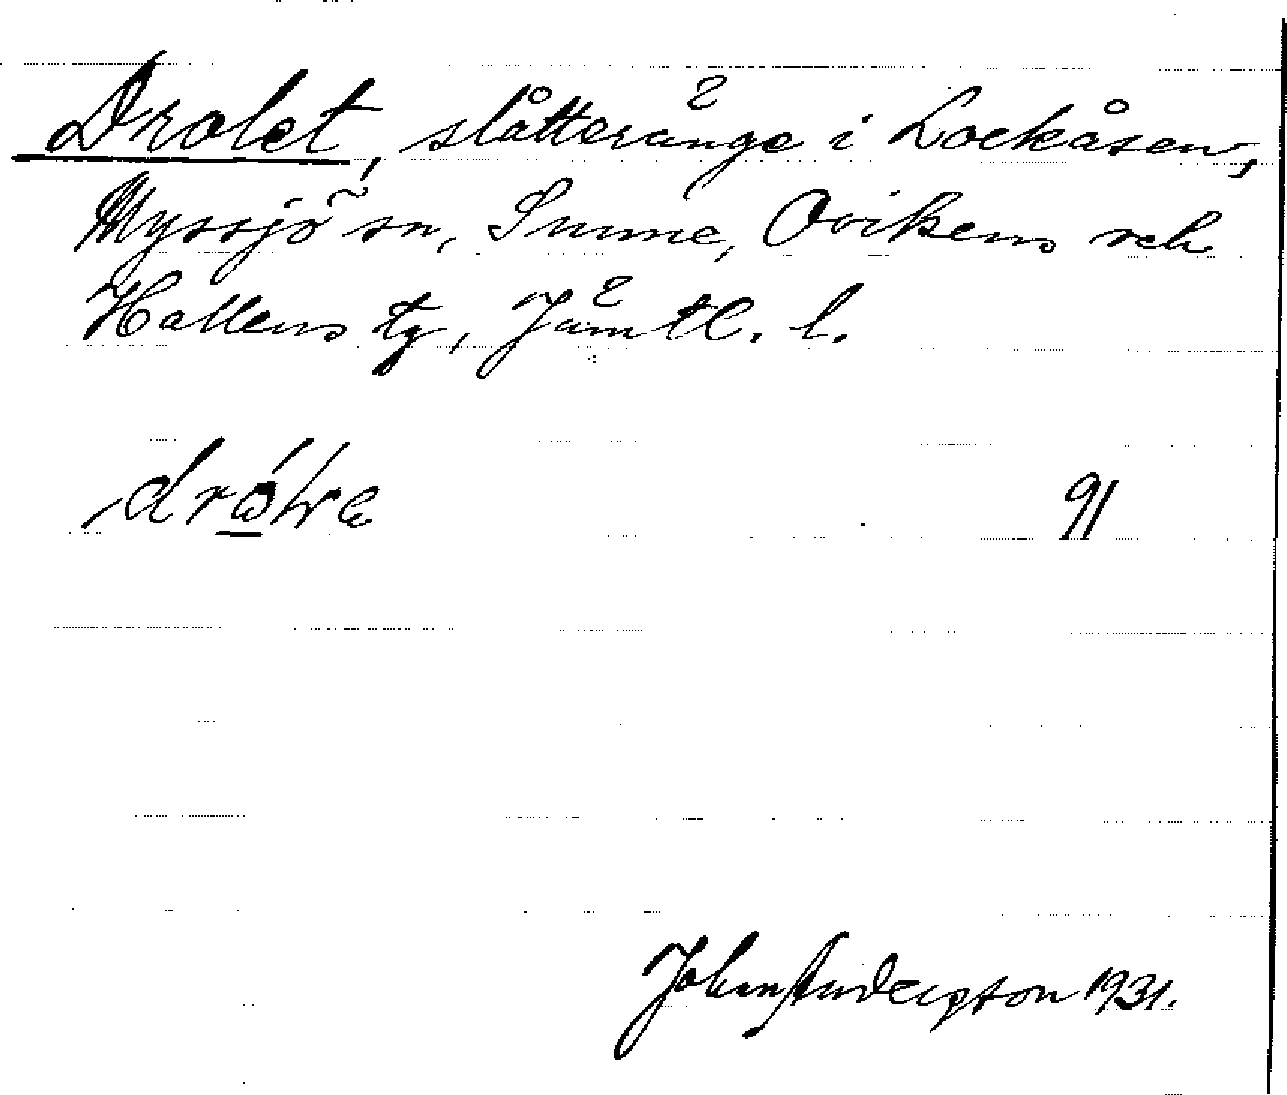 Drolet, slåtteränge i Lockåsen,
Myssjö sn, Sunne, Ovikens och
Hallens tg, Jämtl. l.
91
John Andersson 1931.